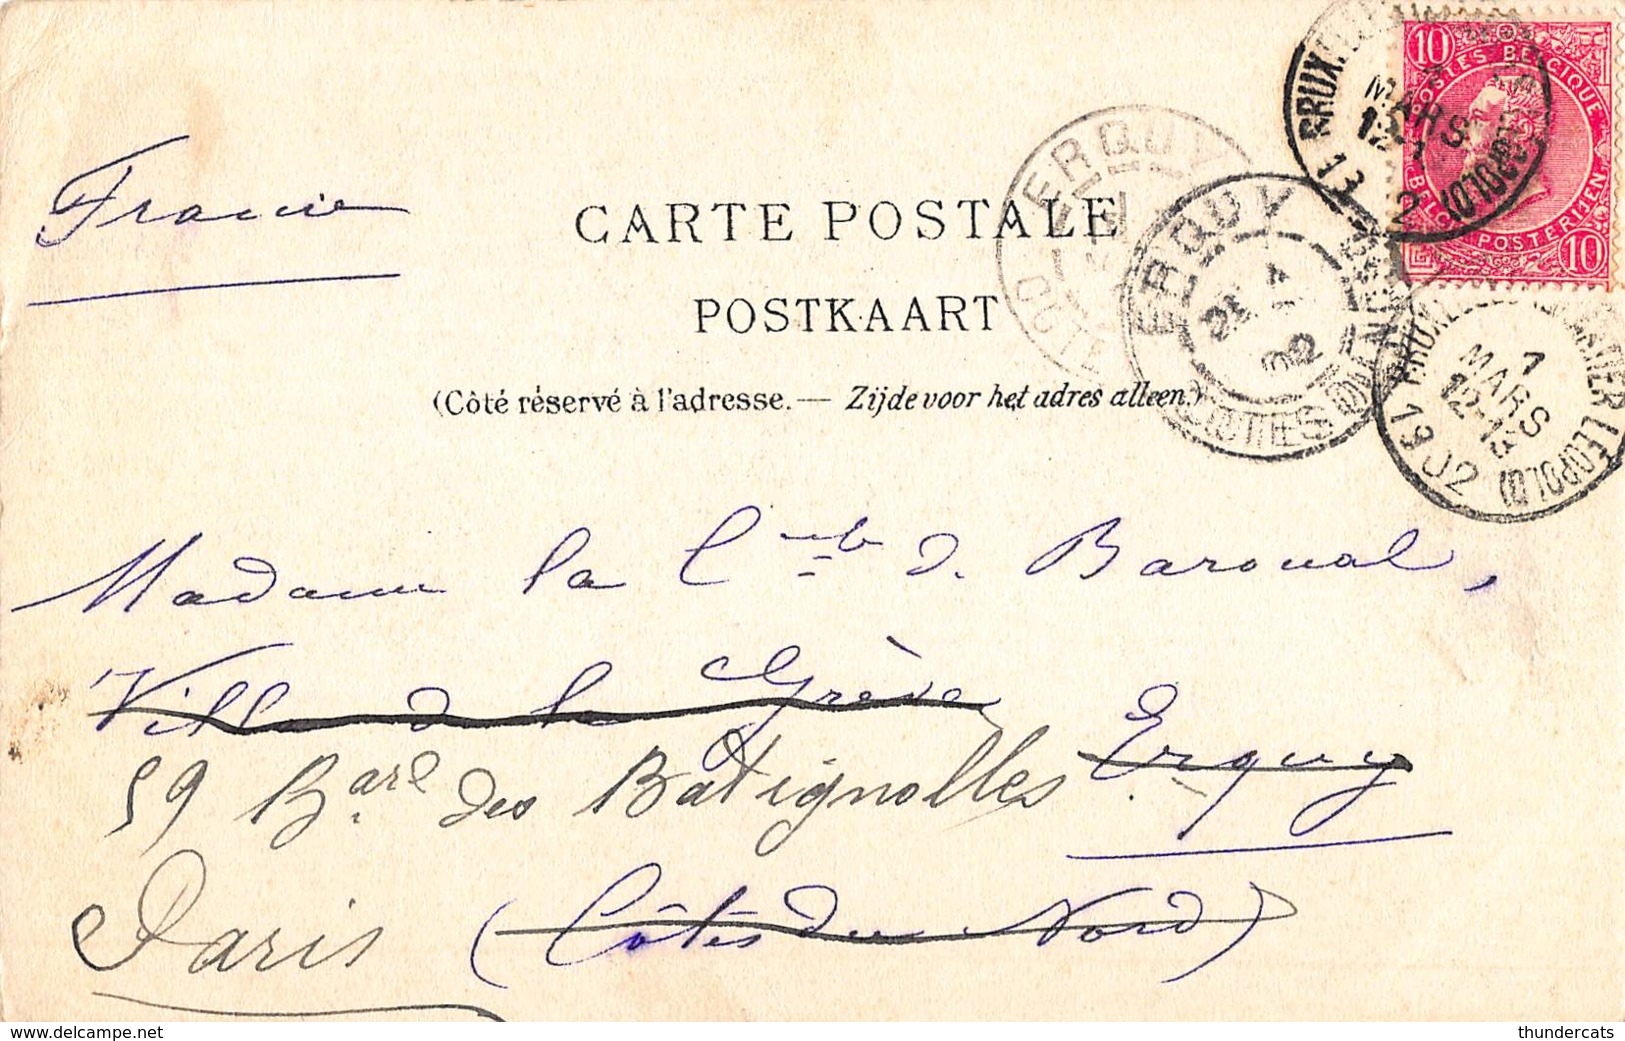 10 10
POSTES BELGIQUE
BELG. POSTERIJEN
10
BRUXELLES
MARS
ERQUY
ERQUY
02
CÔTES DU NORD
BRUXELLES (QUARTIER LEOPOLD)
7
MARS
12-13
1902
France
CARTE POSTALE
POSTKAART
(Côté réservé à l'adresse. — Zijde voor het adres alleen.)
Madame la Cmte d. Baroual,
Villa de la Grève Erquy
59 Bard des Batignolles
Paris (Côtes du Nord)
www.delcampe.net
thundercats